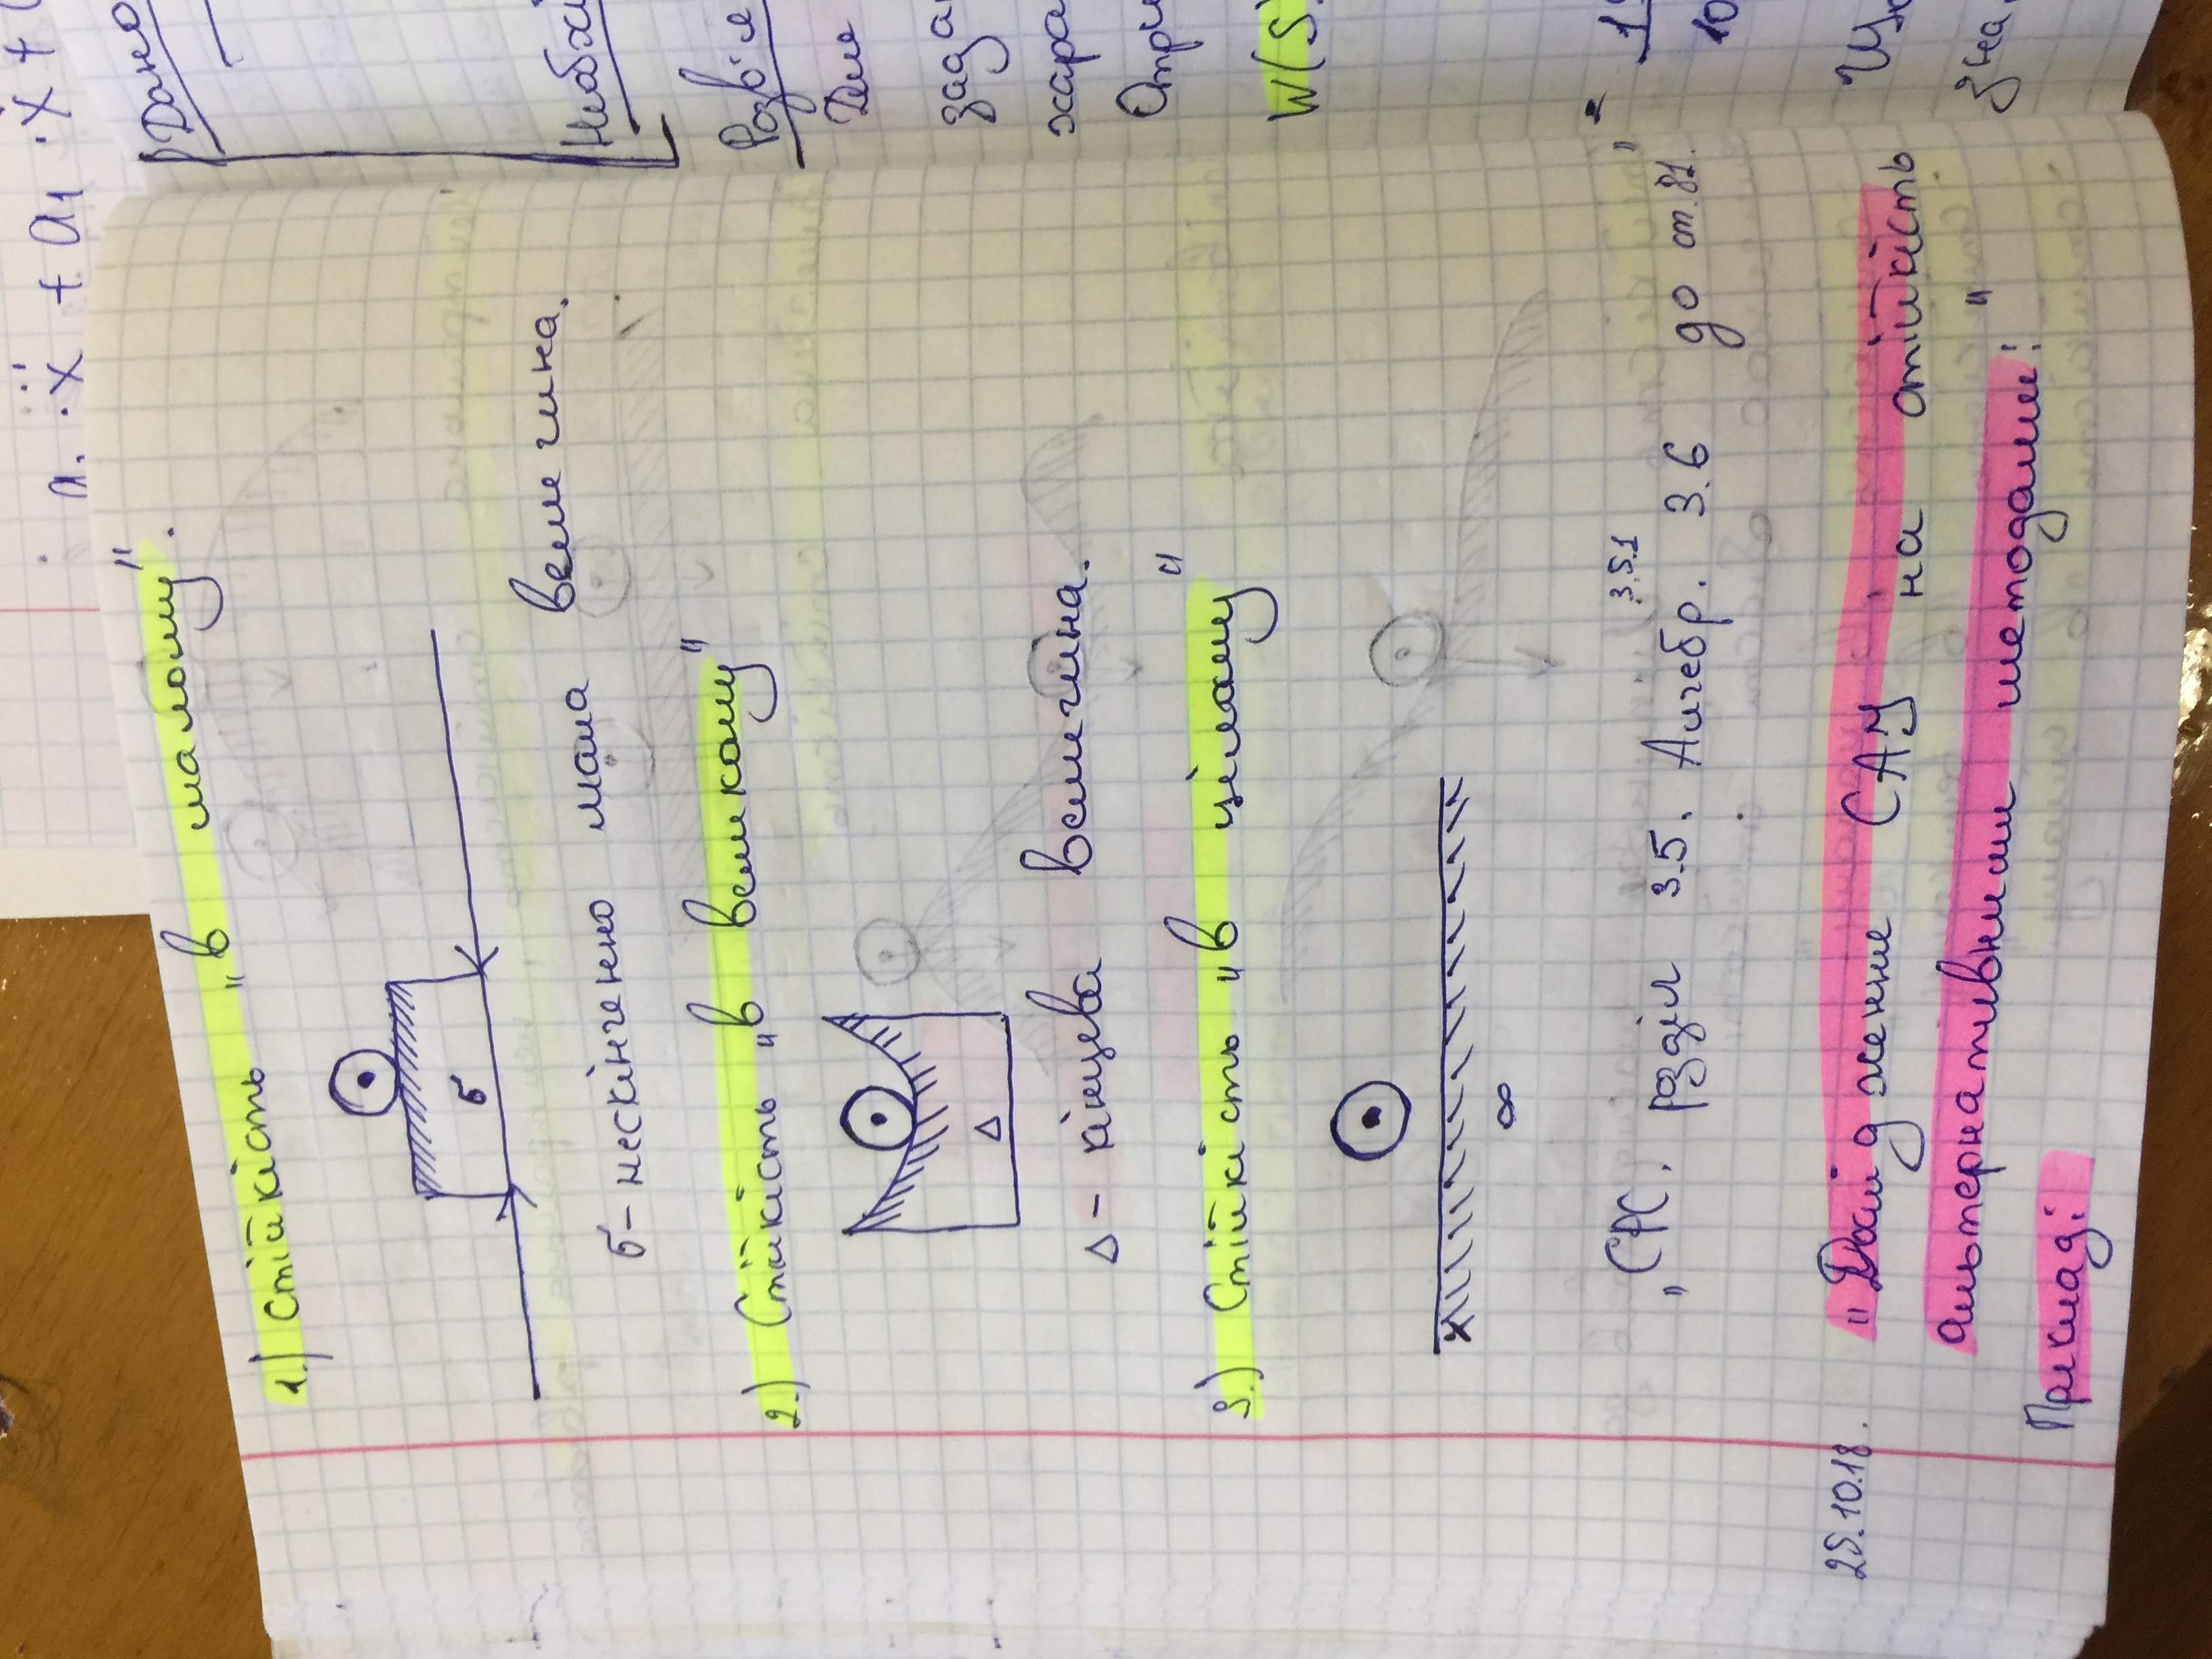 · ẍ + a₁ · ẋ +
1.) Стійкість „в малому".
б
б – нескінченно мала величина.
2.) Стійкість „в великому"
Δ
Δ – кінцева величина.
3.) Стійкість „в цілому"
∞
„СРС. розділ 3.5. Алгебр. 3.5.1 3.6 до ст.81."
25.10.18. "Дослідження САУ на стійкість
альтернативними методами:"
Приклад:
Дано
Необхі
Розв'я
Для
зада
хара
Отри
W(S)
=
10
зна